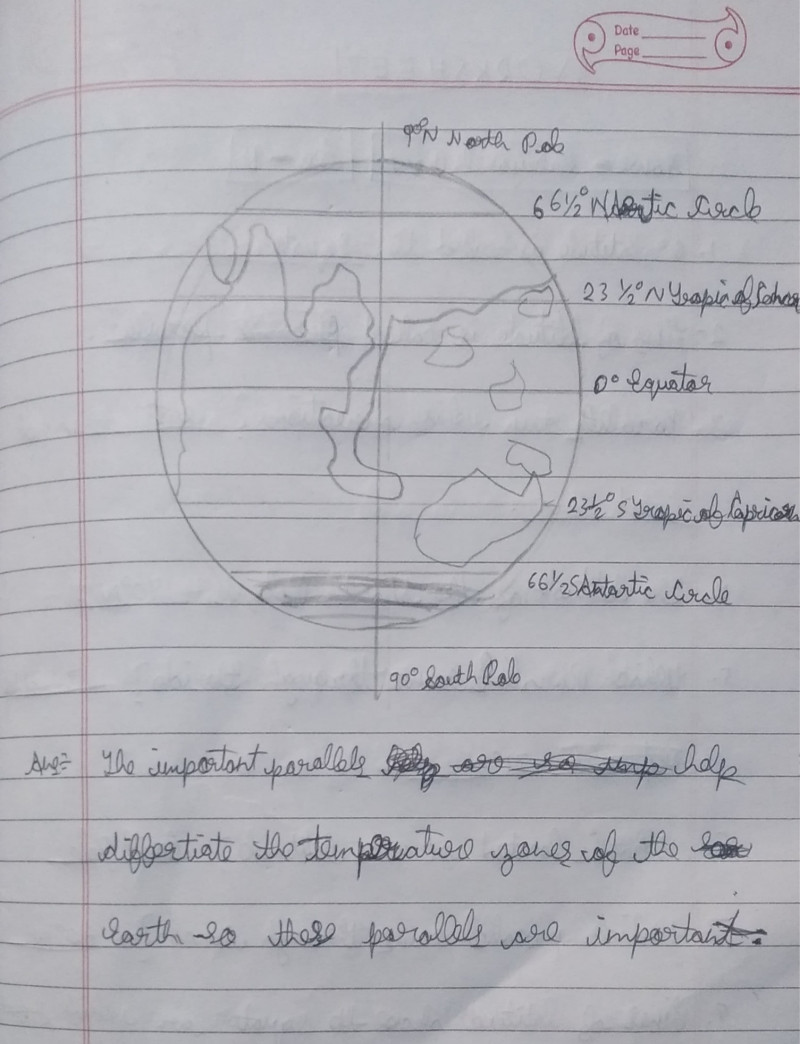 Date
Page
90°N North Pole
66½° N Arctic Circle
23 ½° N Tropic of
0° Equator
23½° S Tropic of Capricorn
66½S Antartic Circle
90° South Pole
Ans:- The important parallels help
differtiate the temperature zones of the
Earth so these parallels are important.